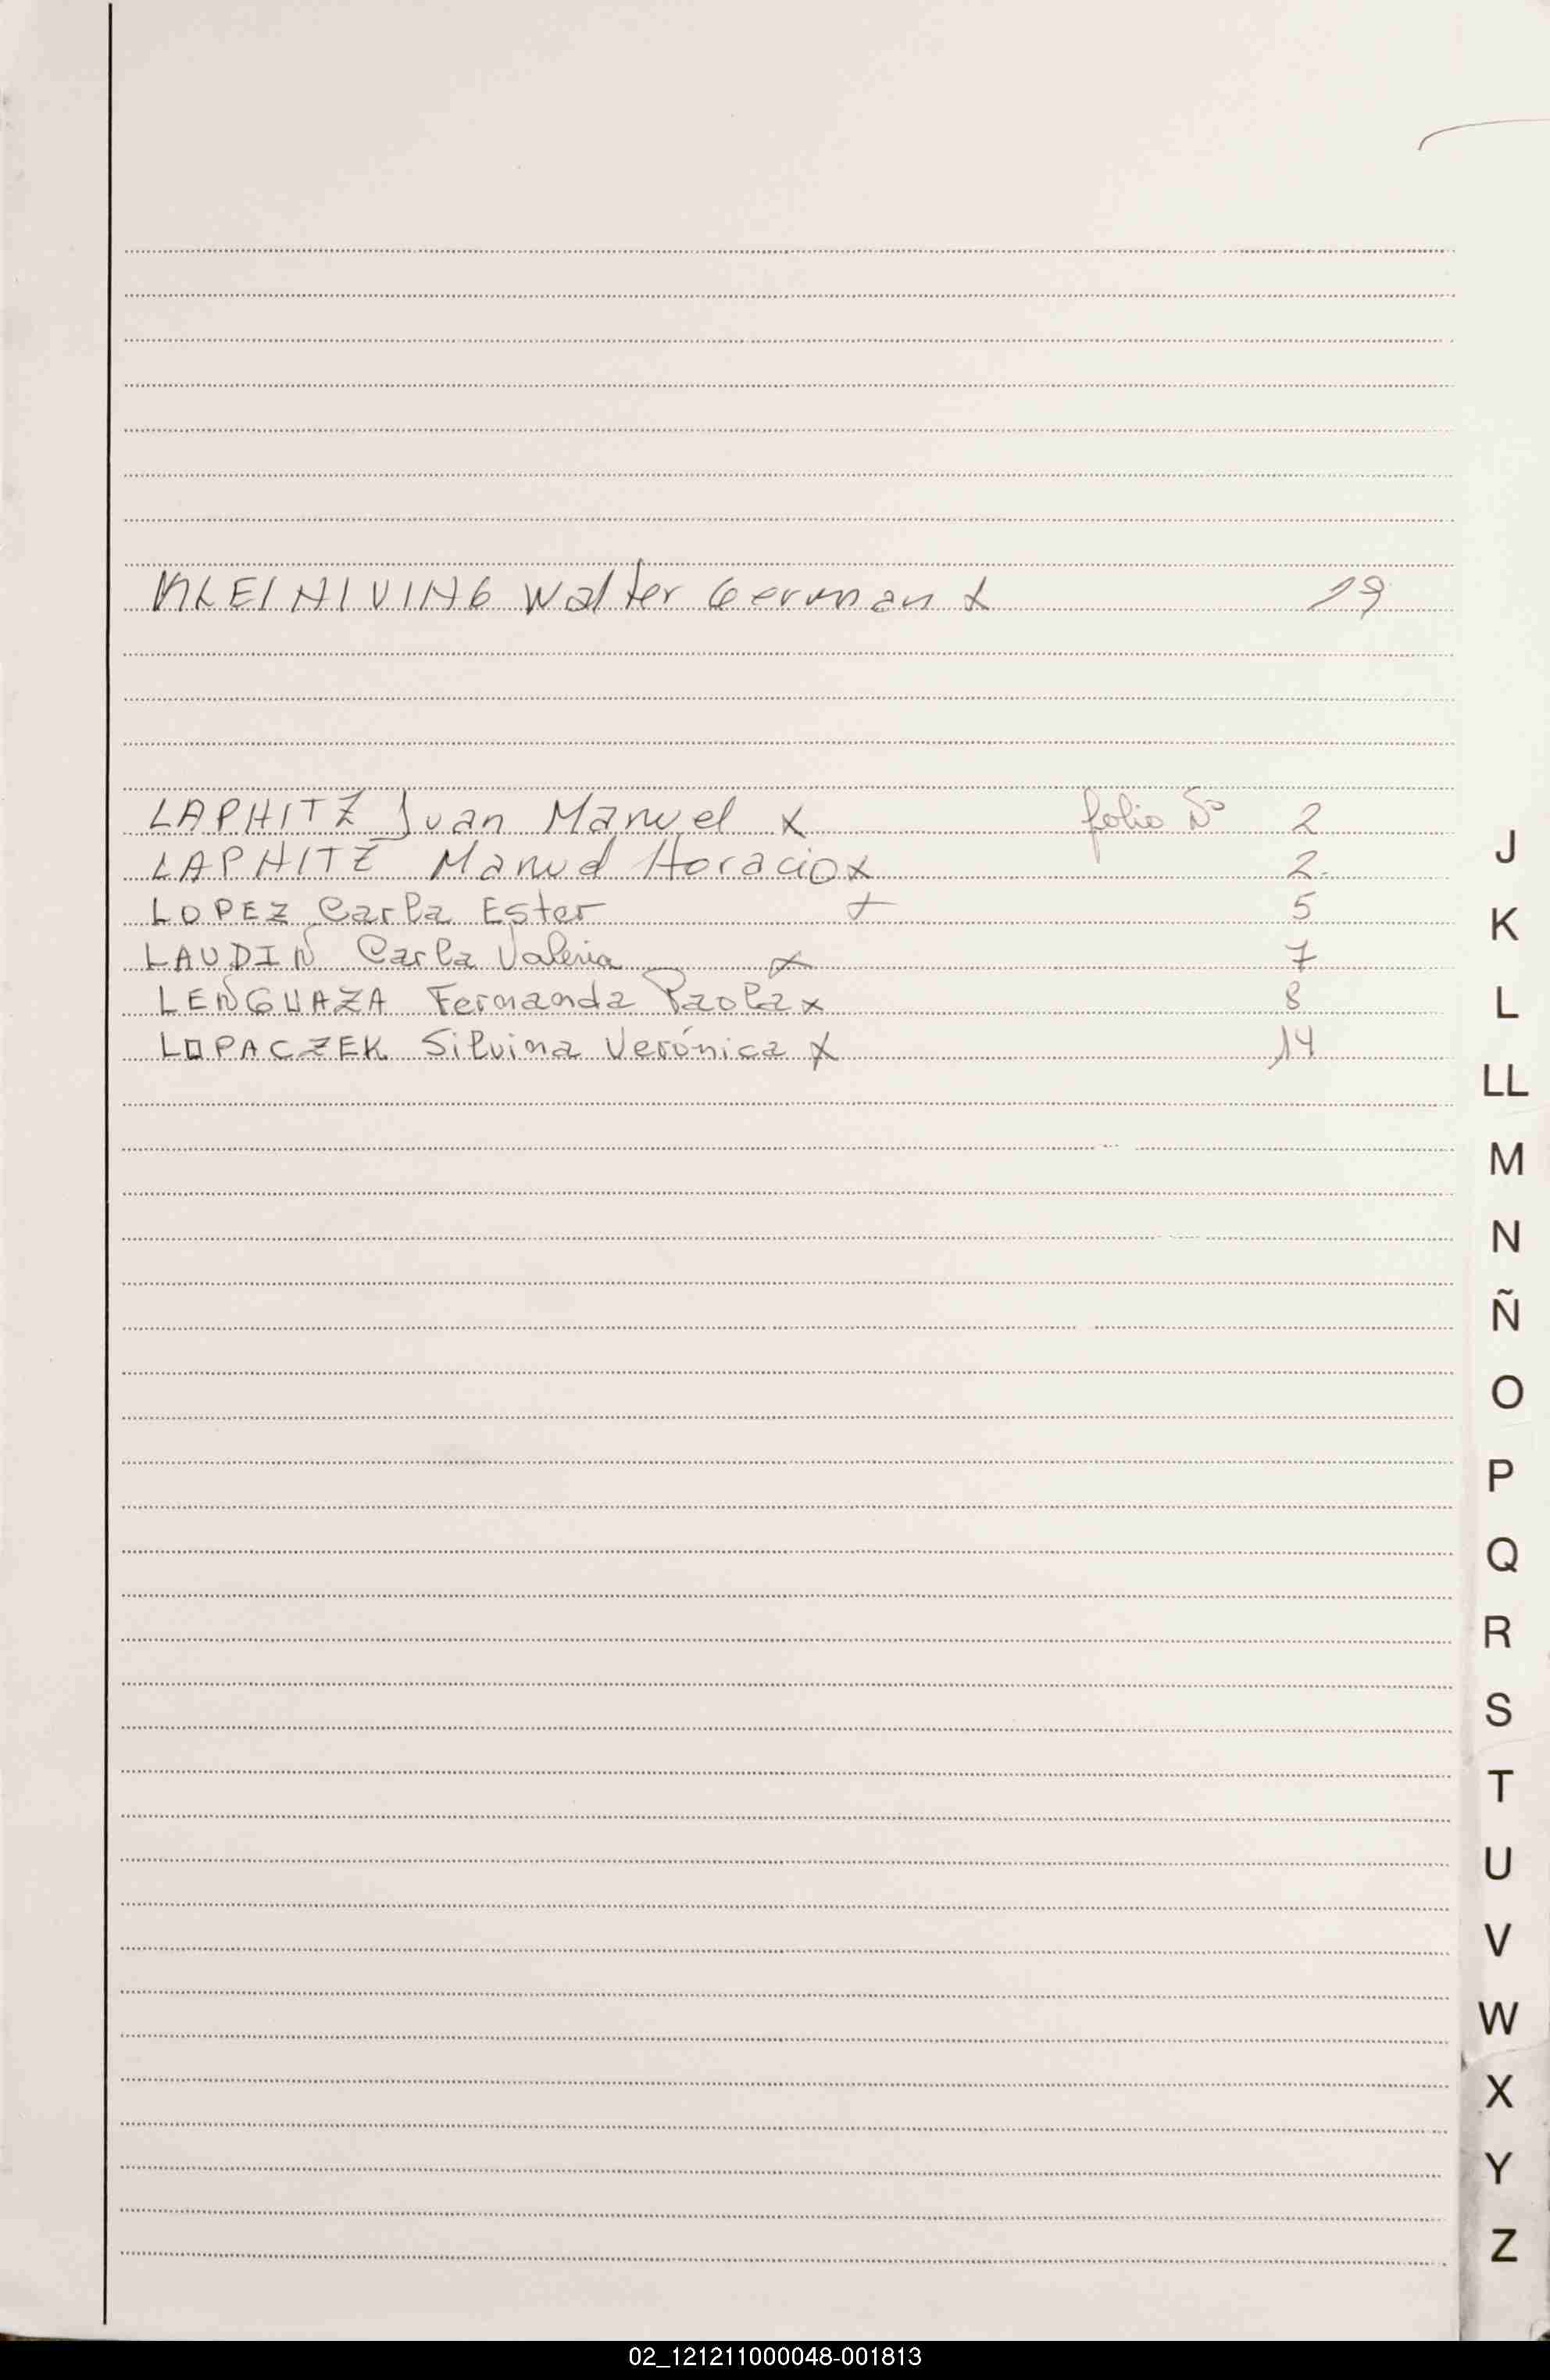 KLEINIVING Walter German x 19
LAPHITZ Juan Manuel x folio Nº 2
LAPHITZ Manuel Horacio x 2
LOPEZ Carla Ester x 5
LAUDIN Carla Valeria x 7
LENGUAZA Fernanda Paola x 8
LOPACZEK Silvina Verónica x 14
J
K
L
LL
M
N
Ñ
O
P
Q
R
S
T
U
V
W
X
Y
Z
02_121211000048-001813